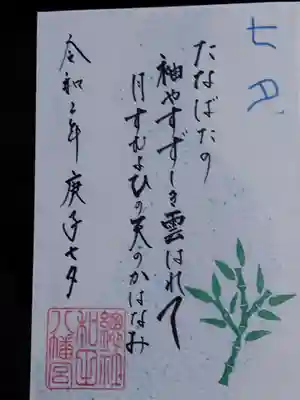 七夕
たなばたの
袖やすずしき雲はれて
月すむよひの天のかはなみ
令和2年 庚子七夕
總社
和田
八幡宮